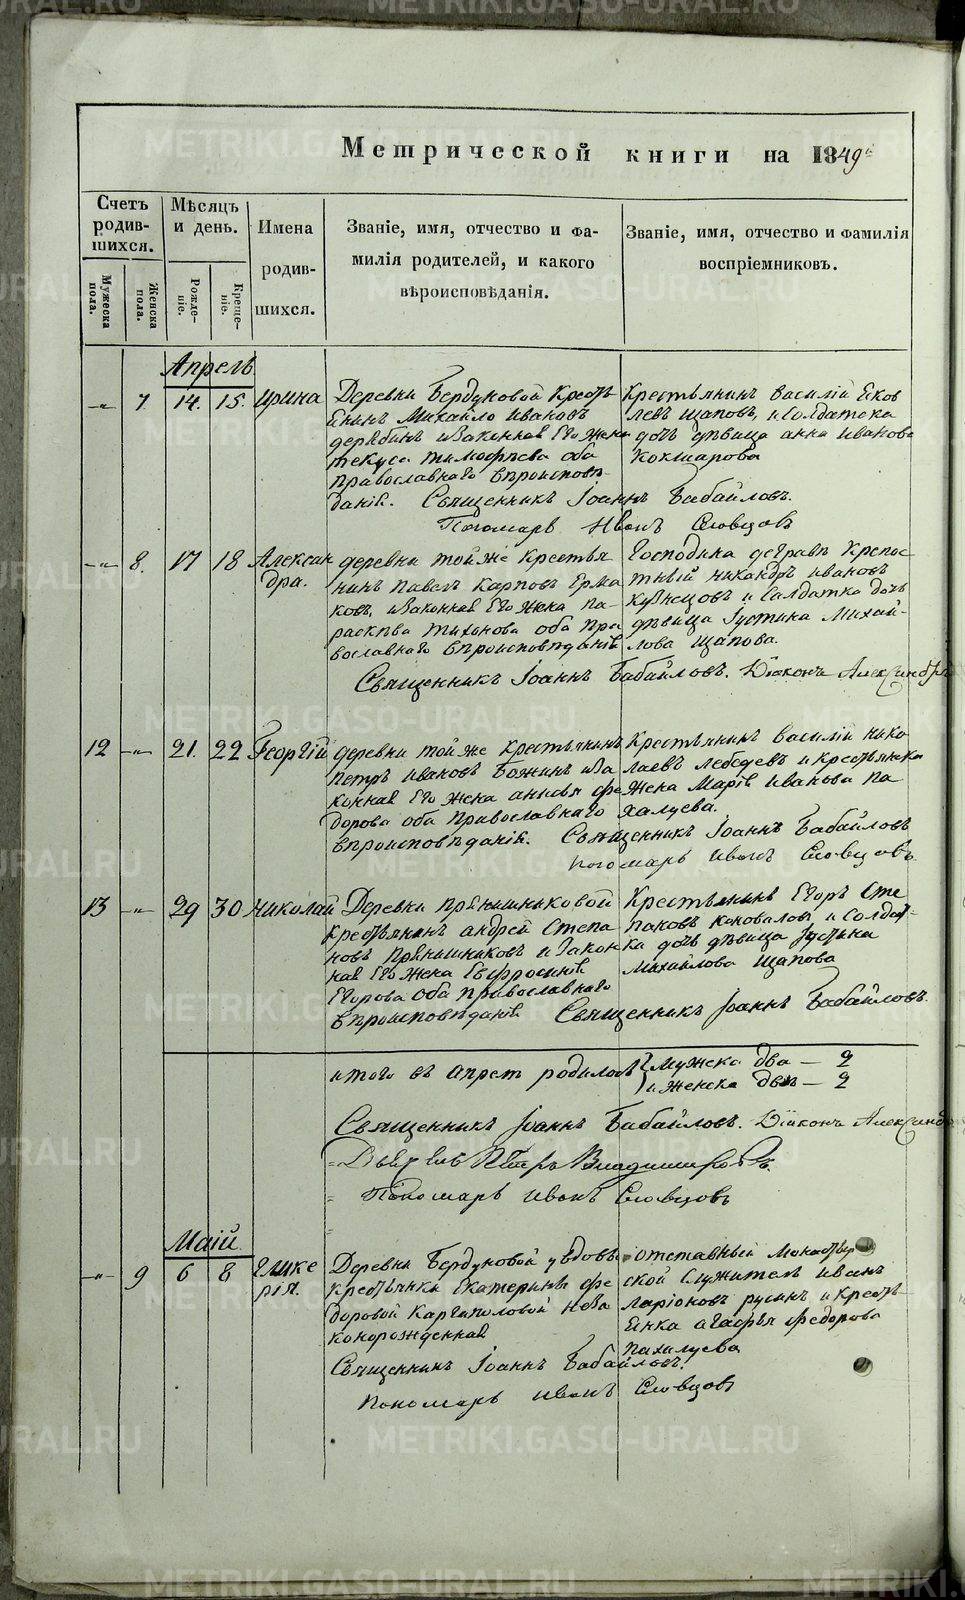 Метрической книги на 1849й
Счетъ родив-шихся.
Мужеска пола.
Женска пола.
Мѣсяцъ и день.
Рожде-ніе.
Креще-ніе.
Имена родив-шихся.
Званіе, имя, отчество и фа-
милія родителей, и какого
вѣроисповѣданія.
Званіе, имя, отчество и фамилія
воспріемниковъ.
Апрель
7. 14. 15. Ирина
Деревни Бердуковой Кресть
янинъ Михайло Ивановъ
дерябинъ изаконная Его жена
текуса тимофѣева оба
православнаго вѣроисповѣ-
данія. Священникъ Іоаннъ Бабайловъ.
Пономарь Иванъ Словцовъ
Крестьянинъ василій Еков
левъ щаповъ, и Солдатска
дочь дѣвица анна иванова
Кокшарова
8. 17 18 Алексан
дра.
деревни тойже крестья
нинъ павелъ карповъ Ерма
ковъ, изаконная Его жена па-
расквва тихонова оба пра
вославнаго вѣроисповѣданія
Господина Крепос
тный никандръ ивановъ
кузнецовъ и Солдатка дочь
дѣвица Іустина Михай-
лова щапова.
Священникъ Іоаннъ Бабайловъ. Діаконъ Александръ
12 21. 22 Георгій
деревни тойже крестьянинъ
петръ ивановъ Божинъ иза
конная Его жена анисья фе
дорова оба православнаго
вѣроисповѣданія. Священникъ Іоаннъ Бабайловъ
пономарь иванъ Словцовъ.
Крестьянинъ василій нико
лаевъ лебедевъ и крестьянска
жена Марія иванова па
халуева.
13 29 30 николай
Деревни прянишниковой
крестьянинъ андрей Степа
новъ прянишниковъ и закон
ная Его жена Евфросинія
Егорова оба православнаго
вѣроисповѣданія Священникъ Іоаннъ Бабайловъ.
Крестьянинъ Егоръ Сте
пановъ коноваловъ и солдат-
ка дочь дѣвица Іустина
михайлова щапова
итого въ апрелѣ родилось { мужска два — 2
и женска двѣ — 2
Священникъ Іоаннъ Бабайловъ. Діаконъ Александръ
Петръ Владимировъ.
Пономарь иванъ Словцовъ
Маій
9 6 8 Глике
рія.
Деревни Бердуковой у вдовы
крестьянки Екатерины фе
доровой Каргаполовой неза
конорожденная
Священникъ Іоаннъ Бабайловъ.
Пономарь иванъ Словцовъ
отставный монастыр
ской служитель иванъ
ларіоновъ русинъ и крестья-
енка агафья федорова
пахалуева
METRIKI.GASO-URAL.RU